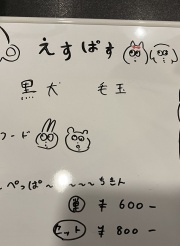 えすぱす
黒犬 毛玉
フード
ぺっぱ〜〜〜〜ちきん
単 ¥600-
セット ¥800-